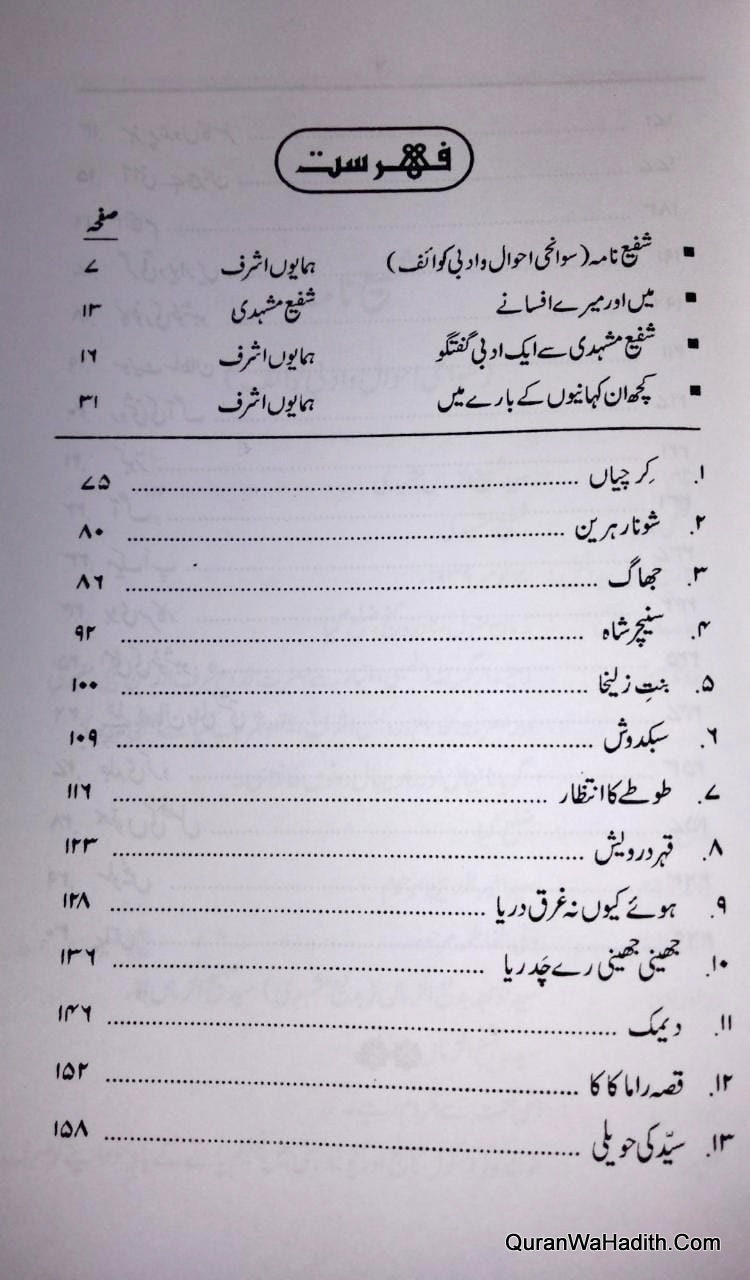 فہرست
صفحہ
▪ شفیع نامہ (سوانحی احوال و ادبی کوائف) ہمایوں اشرف ۷
▪ میں اور میرے افسانے شفیع مشہدی ۱۳
▪ شفیع مشہدی سے ایک ادبی گفتگو ہمایوں اشرف ۱۶
▪ کچھ ان کہانیوں کے بارے میں ہمایوں اشرف ۳۱
۱. کِرچیاں ۷۵
۲. شونار ہرین ۸۰
۳. جھاگ ۸۶
۴. سنیچر شاہ ۹۲
۵. بنتِ زلیخا ۱۰۰
۶. سبکدوش ۱۰۹
۷. طوطے کا انتظار ۱۱۶
۸. قہر درویش ۱۲۳
۹. ہوئے کیوں نہ غرق دریا ۱۲۸
۱۰. جھینی جھینی رے چَدریا ۱۳۶
۱۱. دیمک ۱۴۶
۱۲. قصہ راما کاکا ۱۵۲
۱۳. سیّد کی حویلی ۱۵۸
QuranWaHadith.Com